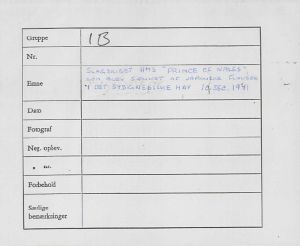 Gruppe 1B
Nr.
SLAGSKIBET HMS "PRINCE OF WALES"
Emne SOM BLEV SÆNKET AF JAPANSKE FLYVERE
I DET SYDKINESISKE HAV 10 DEC. 1941
Dato
Fotograf
Neg. opbev.
Forbehold
Særlige
bemærkninger